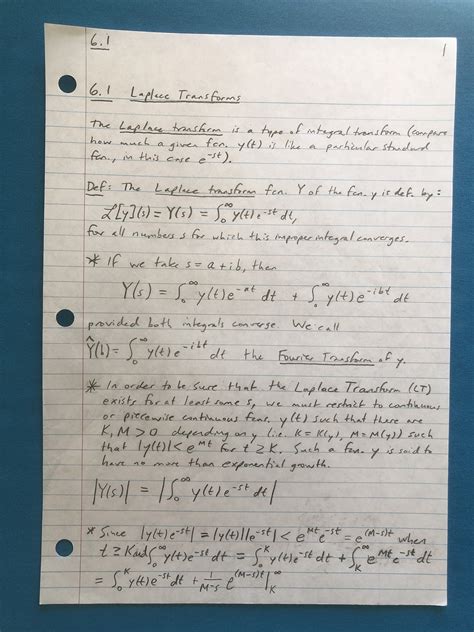 6.1
1
6.1 Laplace Transforms
The Laplace transform is a type of integral transform (compare
how much a given fcn. y(t) is like a particular standard
fcn., in this case e^-st).
Def: The Laplace transform fcn. Y of the fcn. y is def. by:
ℒ[y](s) = Y(s) = ∫_0^∞ y(t) e^-st dt,
for all numbers s for which this improper integral converges.
* If we take s = a + ib, then
Y(s) = ∫_0^∞ y(t) e^-at dt + ∫_0^∞ y(t) e^-ibt dt
provided both integrals converge. We call
Ŷ(b) = ∫_0^∞ y(t) e^-ibt dt the Fourier Transform of y.
* In order to be sure that the Laplace Transform (LT)
exists for at least some s, we must restrict to continuous
or piecewise continuous fcns. y(t) such that there are
K, M > 0 depending on y (i.e. K = K(y), M = M(y)) such
that |y(t)| < e^Mt for t ≥ K. Such a fcn. y is said to
have no more than exponential growth.
|Y(s)| = |∫_0^∞ y(t) e^-st dt|
* Since |y(t) e^-st| = |y(t)||e^-st| < e^Mt e^-st = e^(M-s)t when
t ≥ K and ∫_0^∞ y(t) e^-st dt = ∫_0^K y(t) e^-st dt + ∫_K^∞ e^Mt e^-st dt
= ∫_0^K y(t) e^-st dt + 1/(M-s) e^(M-s)t |_K^∞